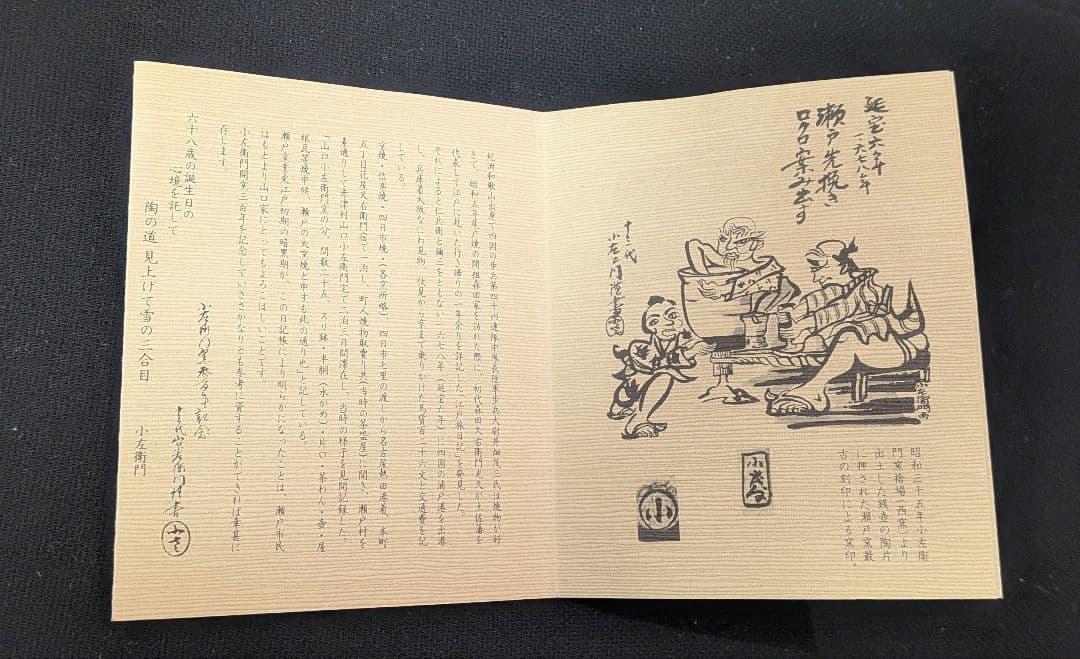 延宝六年
一六七八年
瀬戸先挽き
ロクロ案み出す
十二代
小左衛門
昭和二十五年小左衛
門窯捨場（西窯）より
出土した銭壺の陶片
に押された瀬戸窯最
古の刻印による窯印。
小
紀州和歌山出身で四国の歩兵第四十四連隊中隊長陸軍歩兵大尉井畑茂三氏は焼物が好
きで、昭和五年尾戸焼の開祖森田家を訪れた際に、初代森田久右衛門光久が土佐藩を
代表して江戸に赴いた行き帰りの一年余りを詳記した「江戸旅日記」を発見した。
それによると仁兵衛と彌三をともない一六七八年（延宝六年）に四国の浦戸港を出港
し、兵庫着大阪なにわ見物、伏見から京まで乗りかけた馬賃百二十六文と交通費を記
している。
京焼・信楽焼・四日市焼・（各窯所略）四日市七里の渡しから名古屋熱田港着、本町
五丁目花屋又右衛門宿で一泊し、町人焼物取賣り共（当時の茶盌屋）聞き、瀬戸村を
素通りして赤津村山口小左衛門宅で二泊三日間滞在し、当時の様子を見聞記録した。
「山口小左衛門窯の分、間数二十五、スリ鉢・半胴（水がめ）・片口・茶わん・壺・屋
根瓦等焼申候、瀬戸の大窯焼と申すも此の通り也」と記している。
瀬戸窯業史江戸初期の暗黒期が、この日記帳により明らかになったことは、瀬戸市民
はもとより山口家にとってもよろこばしいことです。
小左衛門開窯三百年を記念していささかなりとも参考に資することができれば幸甚に
存じます。
六十八歳の誕生日の
心境を託して
陶の道見上げて雪の三合目
小左衛門
小左衛門窯参百年記念